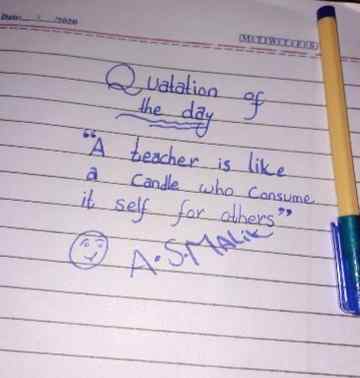 Date: / /2020
M T W T F S S
Quatation of
the day
"A teacher is like
a candle who consume
it self for others"
A.S.MALIK